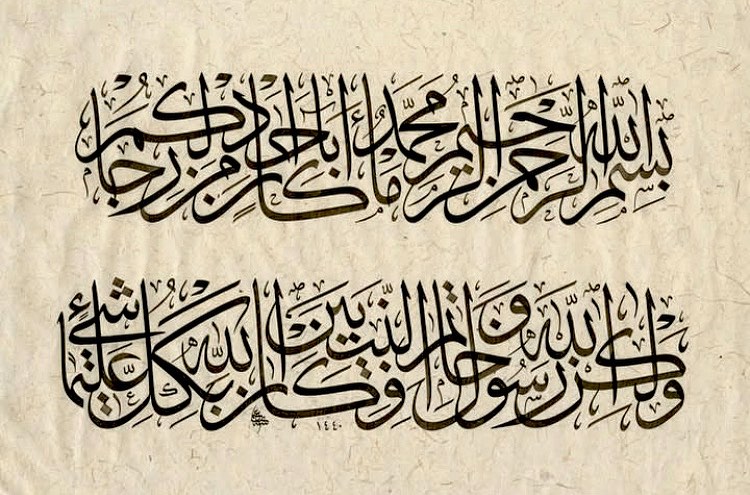 بِسْمِ اللهِ الرَّحْمنِ الرَّحِيمِ مَا كَانَ مُحَمَّدٌ أَبَا أَحَدٍ مِنْ رِجَالِكُمْ
وَلكِنْ رَسُولَ اللهِ وَخَاتَمَ النَّبِيِّينَ وَكَانَ اللهُ بِكُلِّ شَيْءٍ عَلِيمًا
١٤٤٠